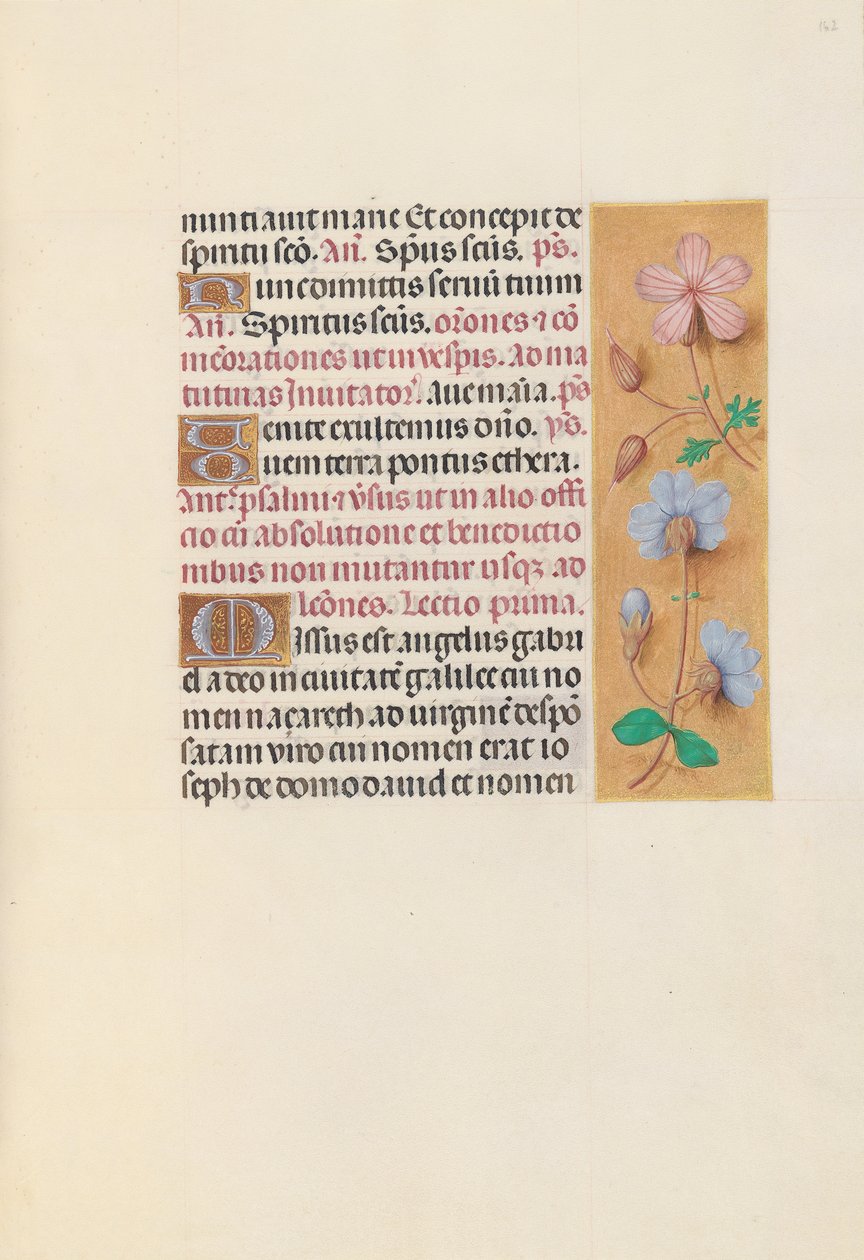 162
nuntiavit marie Et concepit de
spiritu scō. Añ. Sp̄us sc̄us. ps̄.
Nunc dimittis seruū tuum
Añ. Spiritus sc̄us. or̄ones ⁊ cō
mēorationes ut in vesp̄is. Ad ma
tutinas Inuitator̄. Aue mar̄ia. ps̄
Uenite exultemus dn̄o. ys̄.
Quem terra pontus ethera.
Ant̄e psalmi ⁊ v̄sus ut in alio offi
cio cū absolutione et benedictio
nibus non mutantur usqꝫ ad
lēcōnes. Lectio prima.
Missus est angelus gabri
el a deo in ciuitatē galilee cui no
men nazareth ad uirginē despō
satam viro cui nomen erat io
seph de domo dauid et nomen